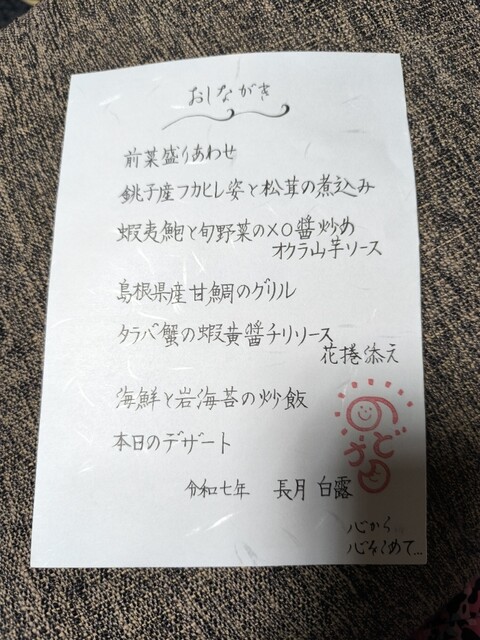 おしながき
前菜盛りあわせ
銚子産フカヒレ姿と松茸の煮込み
蝦夷鮑と旬野菜のXO醬炒め
オクラ山芋ソース
島根県産甘鯛のグリル
タラバ蟹の蝦黄醬チリソース
花捲添え
海鮮と岩海苔の炒飯
本日のデザート
令和七年 長月 白露
心から
心をこめて…